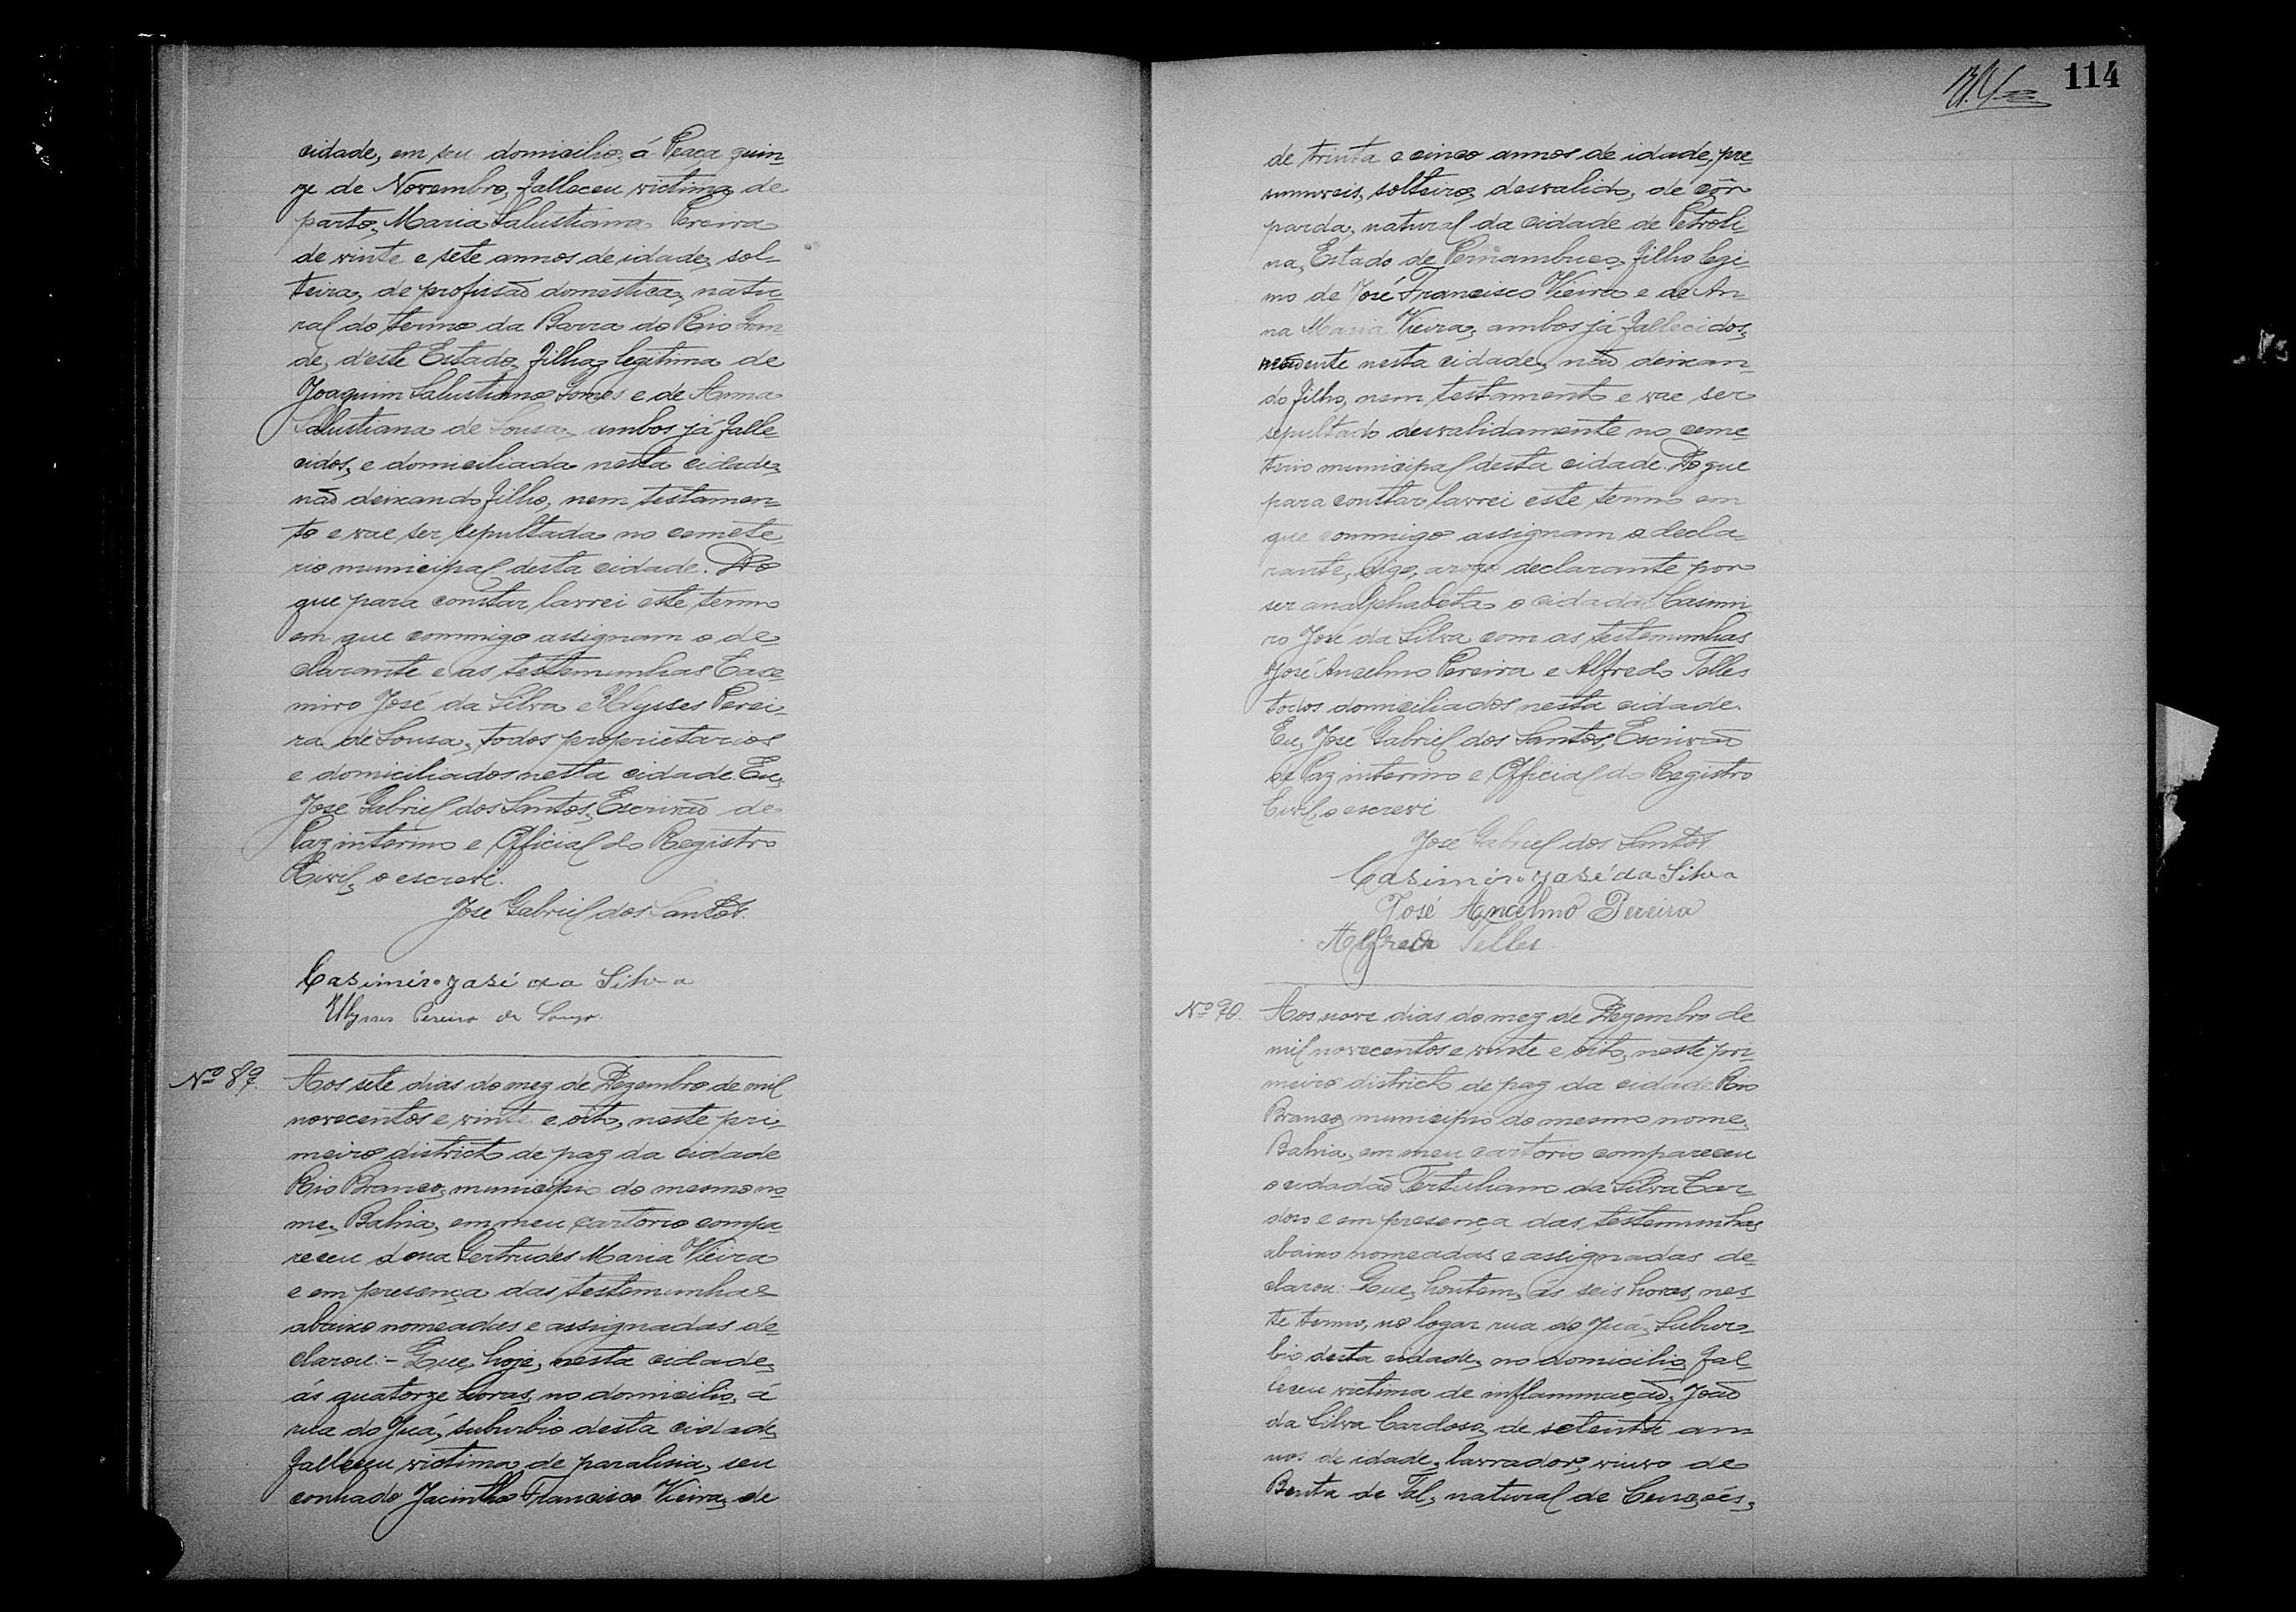 cidade, em seu domicilio, á Praça quin-
ze de Novembro, falleceu victima de
parto, Maria Salustiana Pereira
de vinte e sete annos de idade, sol-
teira, de profissão domestica, natu-
ral do termo da Barra do Rio Gran
de, d'este Estado, filha legitima de
Joaquim Salustiano Gomes e de Anna
Salustiana de Sousa, ambos já falle-
cidos, e domiciliada nesta cidade,
não deixando filho, nem testamen-
to e vae ser sepultada no cemete-
rio municipal desta cidade. Do
que para constar lavrei este termo
em que commigo assignam o de-
clarante e as testemunhas Case-
miro José da Silva e Ulysses Perei-
ra de Sousa, todos proprietarios
e domiciliados nesta cidade. Eu,
José Gabriel dos Santos, Escrivão de
Paz interino e Official do Registro
Civil, o escrevi.
José Gabriel dos Santos.
Casimiro José da Silva
Ulysses Pereira de Souza.
Nº 89.
Aos sete dias do mez de Dezembro de mil
novecentos e vinte e oito, neste pri-
meiro districto de paz da cidade
Rio Branco, municipio do mesmo no-
me, Bahia, em meu cartorio compa-
receu dona Gertrudes Maria Vieira
e em presença das testemunhas
abaixo nomeadas e assignadas de-
clarou:- Que, hoje, nesta cidade,
ás quatorze horas, no domicilio, á
rua do Juá, suburbio desta cidade,
falleceu victima de paralisia, seu
conhado Jacintho Francisco Vieira, de
114
de trinta e cinco annos de idade, pre-
sumiveis, solteiro, desvalido, de côr
parda, natural da cidade de Petroli
na, Estado de Pernambuco, filho legi-
mo de José Francisco Vieira e de An-
na Maria Vieira, ambos já fallecidos,
residente nesta cidade, não deixan-
do filho, nem testamento e vae ser
sepultado desvalidamente no ceme-
terio municipal desta cidade. Do que
para constar lavrei este termo em
que commigo assignam a decla-
rante, digo, a rogo declarante por
ser analphabeta o cidadão Casimi
ro José da Silva com as testemunhas
José Ancelmo Pereira e Alfredo Telles
todos domiciliados nesta cidade.
Eu, José Gabriel dos Santos, Escrivão
de Paz interino e Official do Registro
Civil, o escrevi
José Gabriel dos Santos
Casimiro José da Silva
José Ancelmo Pereira
Alfredo Telles
Nº 90.
Aos nove dias do mez de Dezembro de
mil novecentos e vinte e oito, neste pri-
meiro districto de paz da cidade Rio
Branco, municipio do mesmo nome,
Bahia, em meu cartorio compareceu
o cidadão Tertuliano da Silva Car-
doso e em presença das testemunhas
abaixo nomeadas e assignadas de-
clarou: Que, hontem, ás seis horas, nes-
te termo, no logar rua do Juá, subur-
bio desta cidade, no domicilio, fal-
leceu victima de inflammação, João
da Silva Cardoso, de setenta an-
nos de idade, lavrador, viuvo de
Benta de Tal, natural de Curaçás,